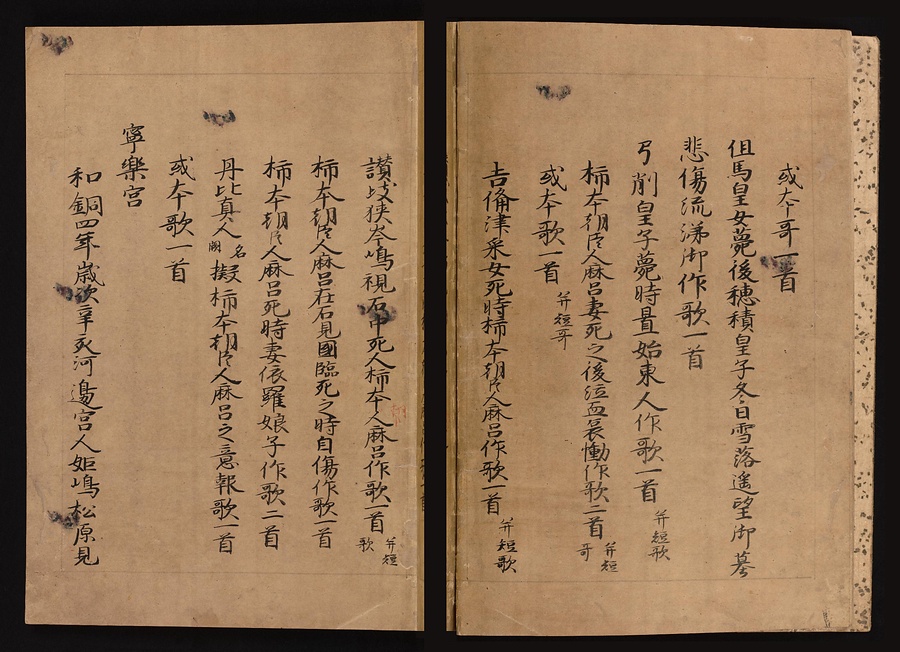 或本哥一首
但馬皇女薨後穂積皇子冬日雪落遥望御墓
悲傷流涕御作歌一首
弓削皇子薨時置始東人作歌一首 并短歌
柿本朝臣人麻呂妻死之後泣血哀慟作歌二首 并短哥
或本歌一首 并短哥
吉備津采女死時柿本朝臣人麻呂作歌一首 并短歌
讃岐狭岑嶋視石中死人柿本人麻呂作歌一首 并短歌
柿本朝臣人麻呂在石見國臨死之時自傷作歌一首
柿本朝臣人麻呂死時妻依羅娘子作歌二首
丹比真人 名闕 擬柿本朝臣人麻呂之意報歌一首
或本歌一首
寧樂宮
和銅四年歳次辛亥河邊宮人姫嶋松原見